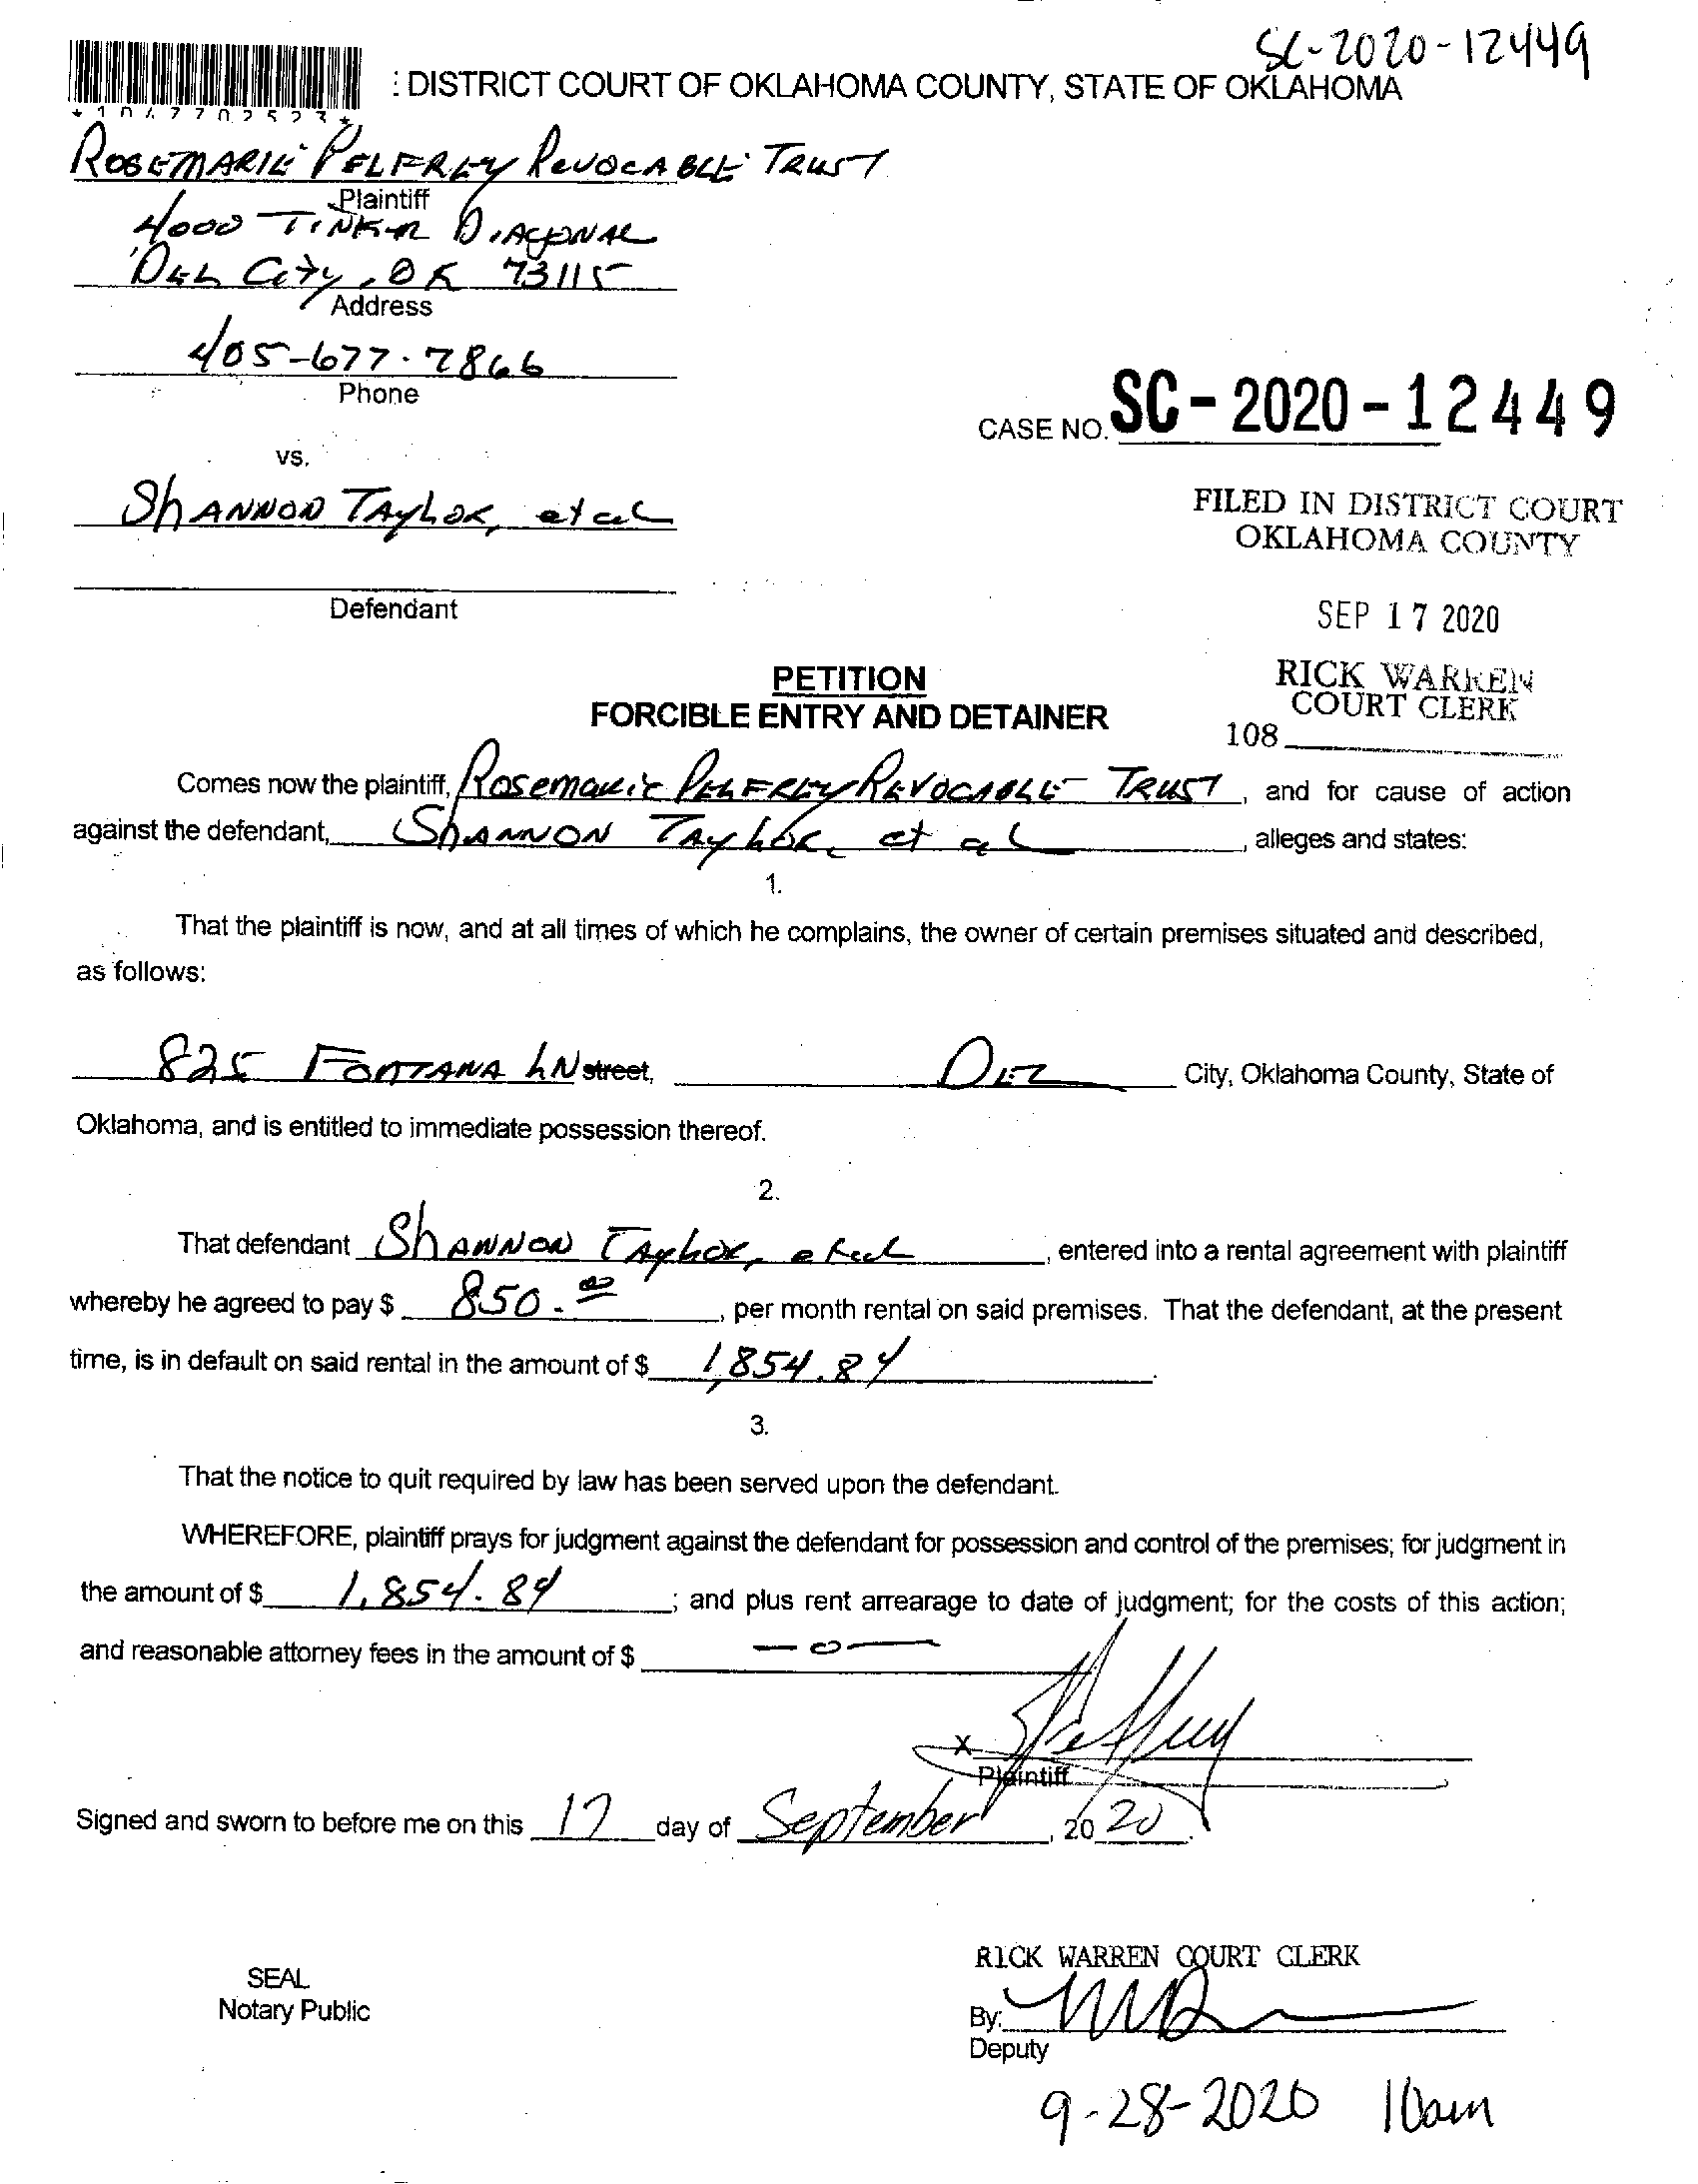 SC-2020-12449
: DISTRICT COURT OF OKLAHOMA COUNTY, STATE OF OKLAHOMA
* 1 0 4 7 7 0 2 5 2 3 *
ROSEMARIE PELFREY REVOCABLE TRUST
Plaintiff
4000 TINKER DIAGONAL
DEL CITY, OK 73115
Address
405-677-7866
Phone
CASE NO. SC-2020-12449
vs.
SHANNON TAYLOR, et al
FILED IN DISTRICT COURT
OKLAHOMA COUNTY
Defendant
SEP 17 2020
PETITION
FORCIBLE ENTRY AND DETAINER
RICK WARREN
COURT CLERK
108
Comes now the plaintiff, Rosemarie PELFREY REVOCABLE TRUST, and for cause of action
against the defendant, SHANNON TAYLOR, et al, alleges and states:
1.
That the plaintiff is now, and at all times of which he complains, the owner of certain premises situated and described,
as follows:
825 FONTANA LN street, DEL City, Oklahoma County, State of
Oklahoma, and is entitled to immediate possession thereof.
2.
That defendant SHANNON TAYLOR, et al, entered into a rental agreement with plaintiff
whereby he agreed to pay $ 850.00, per month rental on said premises. That the defendant, at the present
time, is in default on said rental in the amount of $ 1,854.84.
3.
That the notice to quit required by law has been served upon the defendant.
WHEREFORE, plaintiff prays for judgment against the defendant for possession and control of the premises; for judgment in
the amount of $ 1,854.84; and plus rent arrearage to date of judgment; for the costs of this action;
and reasonable attorney fees in the amount of $ -0-
X
Plaintiff
Signed and sworn to before me on this 17 day of September, 2020.
RICK WARREN COURT CLERK
SEAL
Notary Public
By:
Deputy
9-28-2020 10am